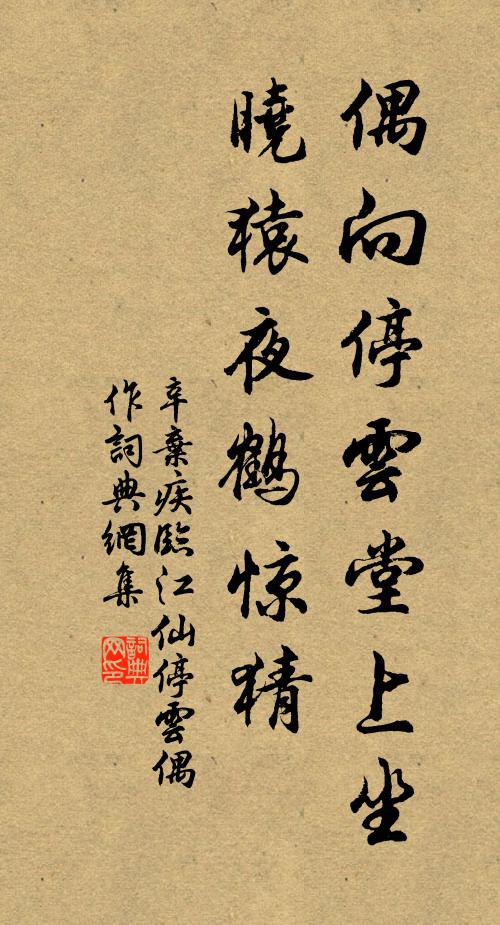 偶向停雲堂上坐
曉猿夜鶴惊猜
辛棄疾臨江仙停雲偶
作詞典網集
詞典网印